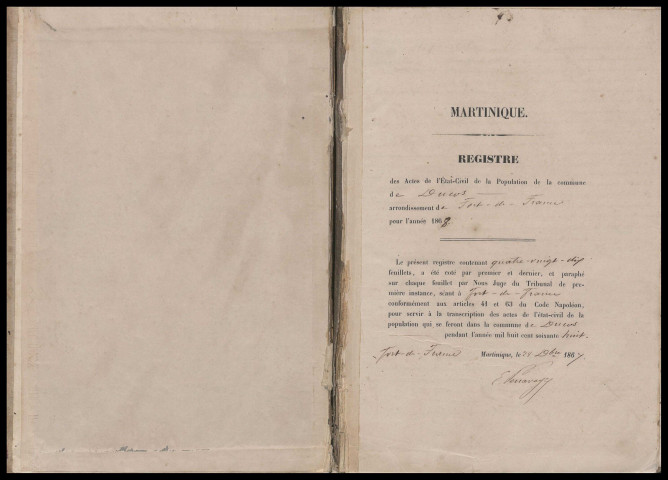 MARTINIQUE.
REGISTRE
des Actes de l'État-Civil de la Population de la commune
de Ducos
arrondissement de Fort-de-France
pour l'année 1868.
Le présent registre contenant quatre-vingt-dix
feuillets, a été coté par premier et dernier, et paraphé
sur chaque feuillet par Nous Juge du Tribunal de pre-
mière instance, séant à Fort-de-France
conformément aux articles 41 et 63 du Code Napoléon,
pour servir à la transcription des actes de l'état-civil de la
population qui se feront dans la commune de Ducos
pendant l'année mil huit cent soixante huit.
Fort-de-France Martinique, le Dbre 1867